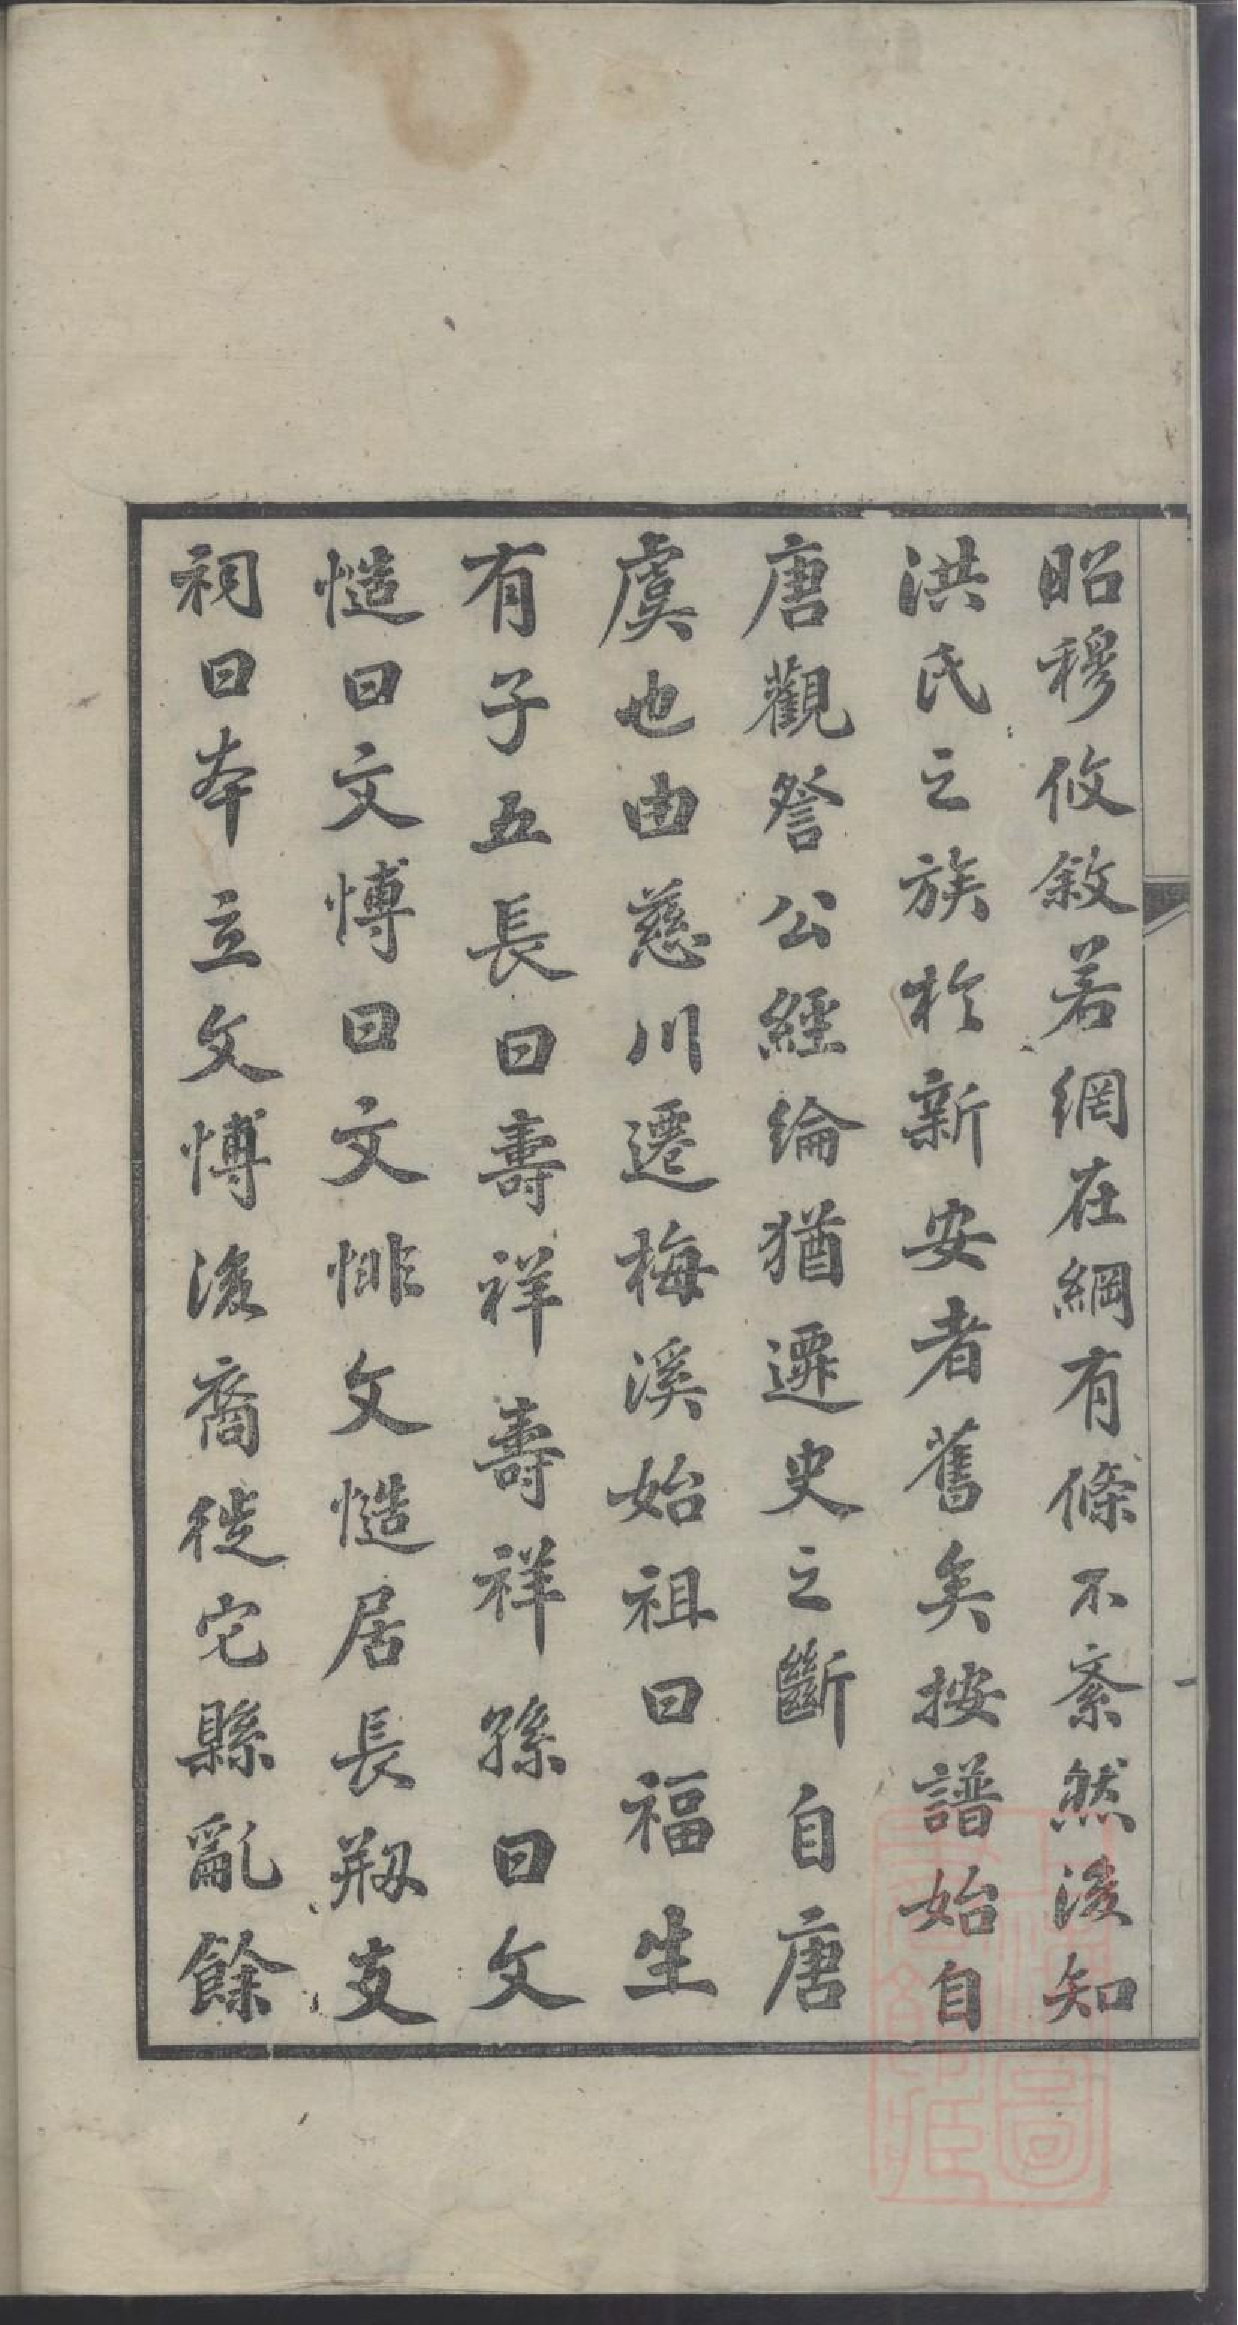 昭穆攸敘若網在綱有條不紊然後知
洪氏之族於新安者舊矣按譜始自
唐觀詧公經綸猶遷史之斷自唐
虞也由慈川遷梅溪始祖曰福生
有子五長曰壽祥壽祥孫曰文
慥曰文愽曰文悱文慥居長刱支
祠曰本立文愽後裔徙它縣亂餘
一
上海圖書館藏